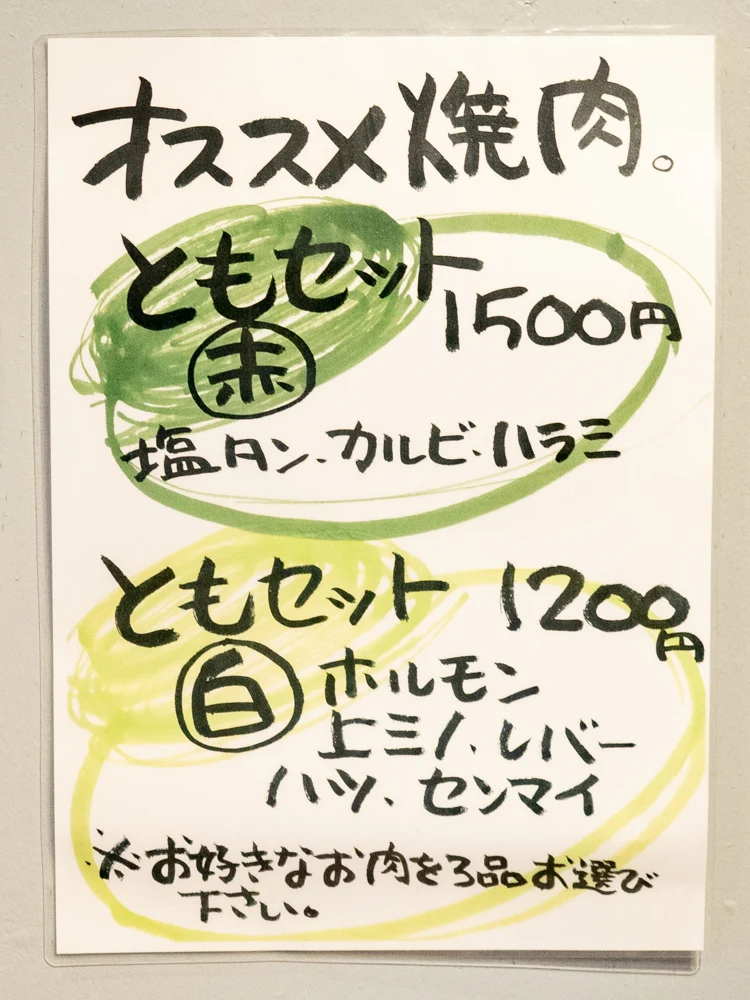 オススメ焼肉。
ともセット 1500円
赤
塩タン、カルビ、ハラミ
ともセット 1200円
白 ホルモン
上ミノ、レバー
ハツ、センマイ
※お好きなお肉を3品お選び
下さい。